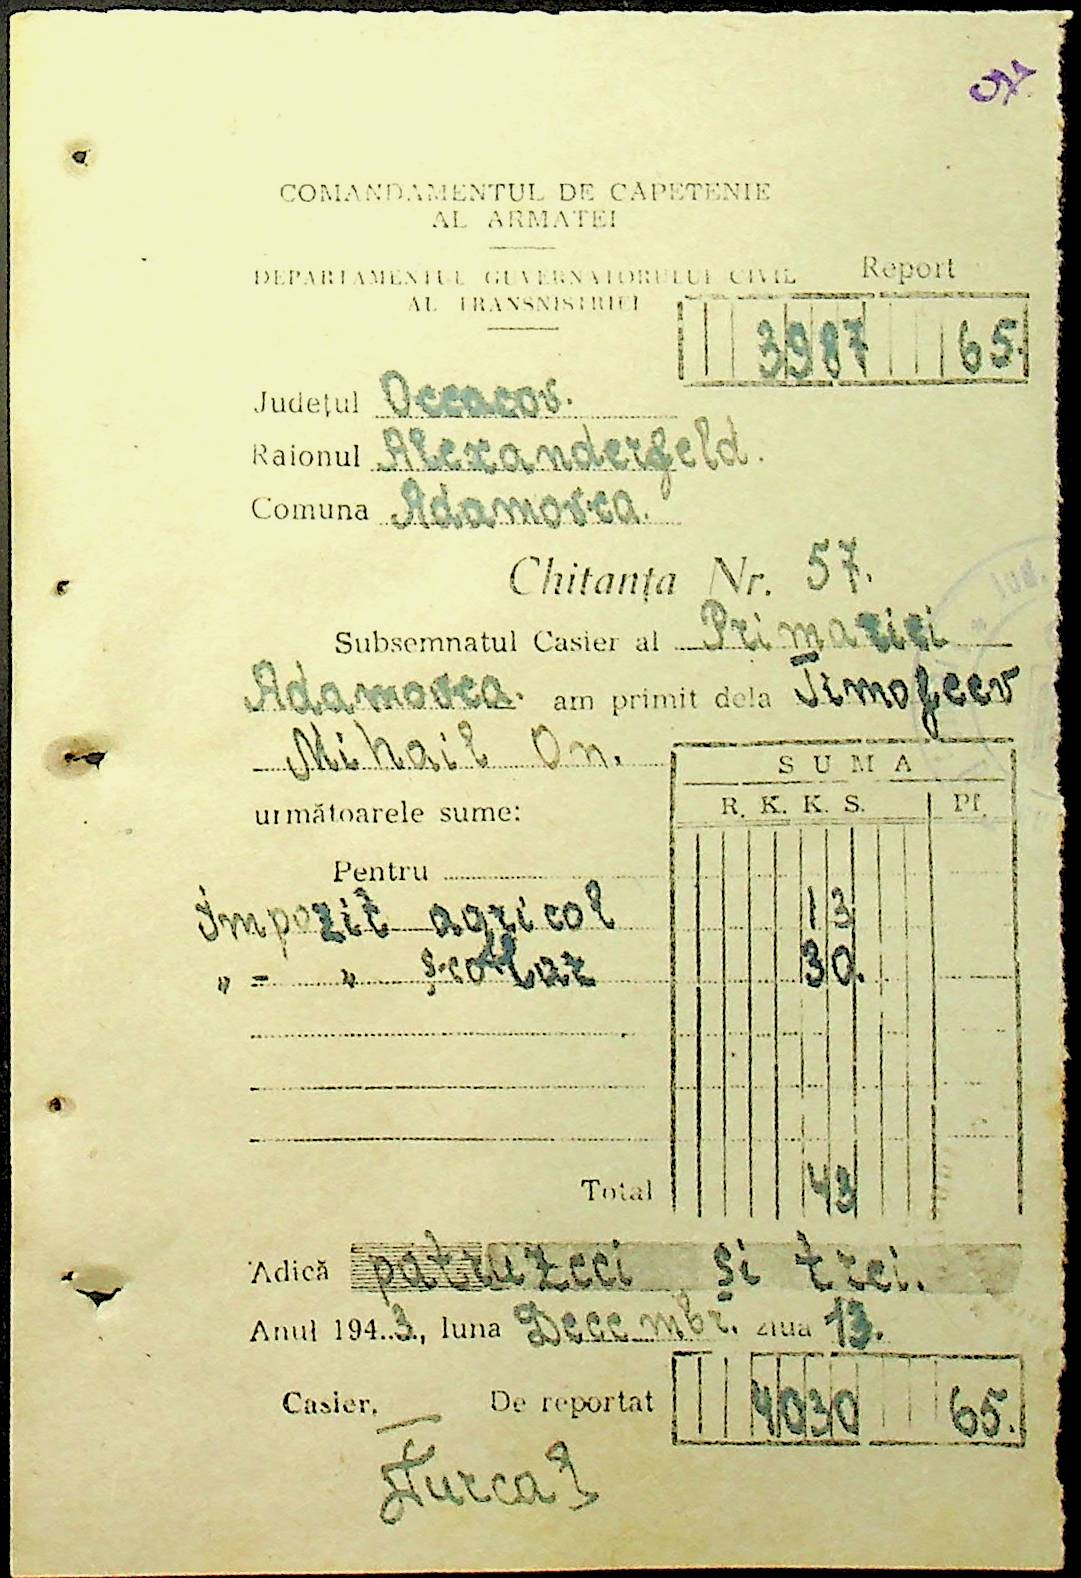 COMANDAMENTUL DE CĂPETENIE
AL ARMATEI
DEPARTAMENTUL GUVERNATORULUI CIVIL
AL TRANSNISTRIEI
Report
3987 65.
Județul Oceacov.
Raionul Alexanderfeld.
Comuna Adamovca.
Chitanța Nr. 57.
Subsemnatul Casier al Primariei
Adamovca. am primit dela Timofeev
Mihail On.
următoarele sume:
SUMA
R. K. K. S. Pf.
Pentru
Impozit agricol 13
„ = „ școllar 30.
Total 43
Adică patruzeci și trei.
Anul 194.3., luna Decembr. ziua 13.
Casier, De reportat 4030 65.
Jud.